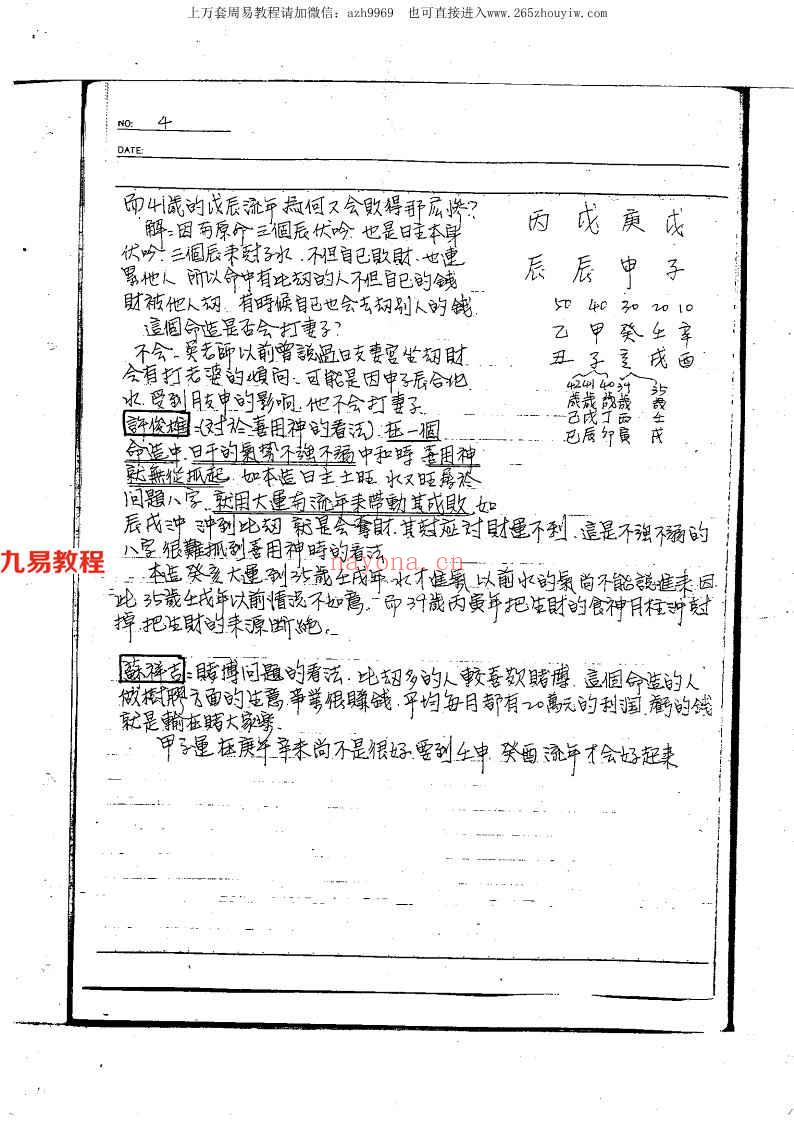 上万套周易教程请加微信：azh9969 也可直接进入www.265zhouyiw.com
NO: 4
DATE:
而41歲的戊辰流年為何又会敗得那広慘？
解=因為原命三個辰伏吟 也是日主本身
伏吟 三個辰來尅子水 不但自己敗財 也連
累他人 所以命中有比劫的人不但自己的錢
財被他人劫 有時候自己也会去劫別人的錢
這個命造是否会打妻子？
不会 吳老師以前曾說過日支妻宮坐劫財
会有打老婆的傾向 可能是因申子辰合化
水 受到月支申的影响 他不会打妻子
許俊雄=(对於喜用神的看法) 在一個
命造中 日干的氣势不強不弱中和時 喜用神
就無從抓起 如本造日主土旺 水又旺 屬於
问題八字 就用大運与流年來帶動其成敗 如
辰戌沖 沖到比劫 就是会奪財 其尅应对財運不利 這是不強不弱的
八字很難抓到喜用神時的看法
本造癸亥大運到35歲壬戌年 水才進氣 以前水的氣尚不能說進來 因
此35歲壬戌年以前情況不如意 而39歲丙寅年把生財的食神月柱沖尅
掉 把生財的來源斷絶
蘇祥吉=賭博问題的看法 比劫多的人較喜歡賭博 這個命造的人
做樹膠方面的生意 事業很賺錢 平均每月都有20萬元的利润 虧的錢
就是輸在賭大家樂
甲子運在庚午辛未尚不是很好 要到壬申 癸酉流年才会好起来
丙 戊 庚 戊
辰 辰 申 子
50 40 30 20 10
乙 甲 癸 壬 辛
丑 子 亥 戌 酉
42 41 40 39 35
歲 歲 歲 歲 歲
己 戊 丁 丙 壬
巳 辰 卯 寅 戌
九易教程
nayona.cn